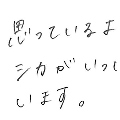 思っているよ
シカがいっ
います。